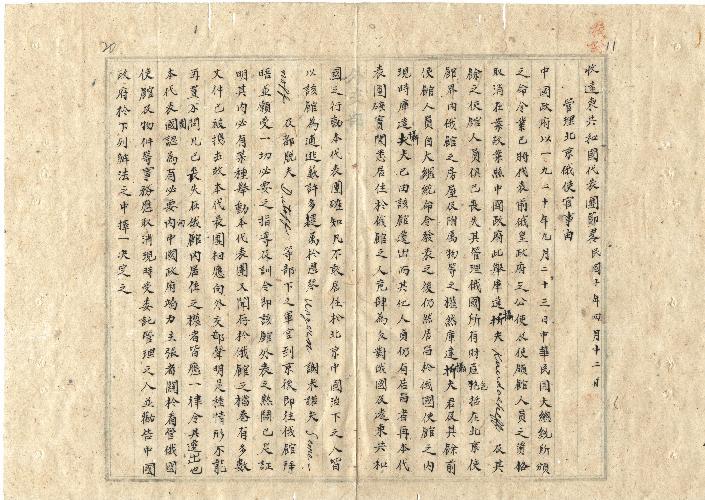 11
20
收遠東共和國代表團節畧民國十年四月十二日
管理北京俄使官事由
中國政府以一九二十年九月二十三日中華民國大總統所頒
之命令業已將代表前俄皇政府之公使及使館人員之資格
取消在案政策縣中國政府此舉庫達攝夫Koudacheff及其
餘之使館人員俱已喪失其管理俄國所有財產包括在北京使
館界內俄館之房屋及附屬物等之權然庫達攝夫君及其餘前
使館人員自大總統命令發表之後仍然居留於俄國使館之內
現時庫達攝夫已由該館遷出而其他人員仍有居留者再本代
表團確實聞悉居住於俄館之人竟肆為反對俄國及遠東共和
國之行動本代表團確知凡不敢居住於北京中國治下之人皆
以該館為逋逃藪許多趨為於恩琴Ungern謝米諾夫Seme-
noff及都脫夫Dutoff等部下之軍官到京後即往俄館降
晤並領受一切必要之指導及訓令即該館外表之熱鬧已足証
明其內必有某種舉動本代表團又聞存於俄館之檔卷有多數
文件已被携出故本代表團相應向外交部聲明是種情形不能
再置不聞凡已喪失在俄館內居住之權者皆應一律令其遷出也
本代表團認為有必要向中國政府竭力主張者關於看管俄國
使館及物件等事務應取消現時受委託管理之人並勸告中國
政府於下列辦法之中擇一決定之